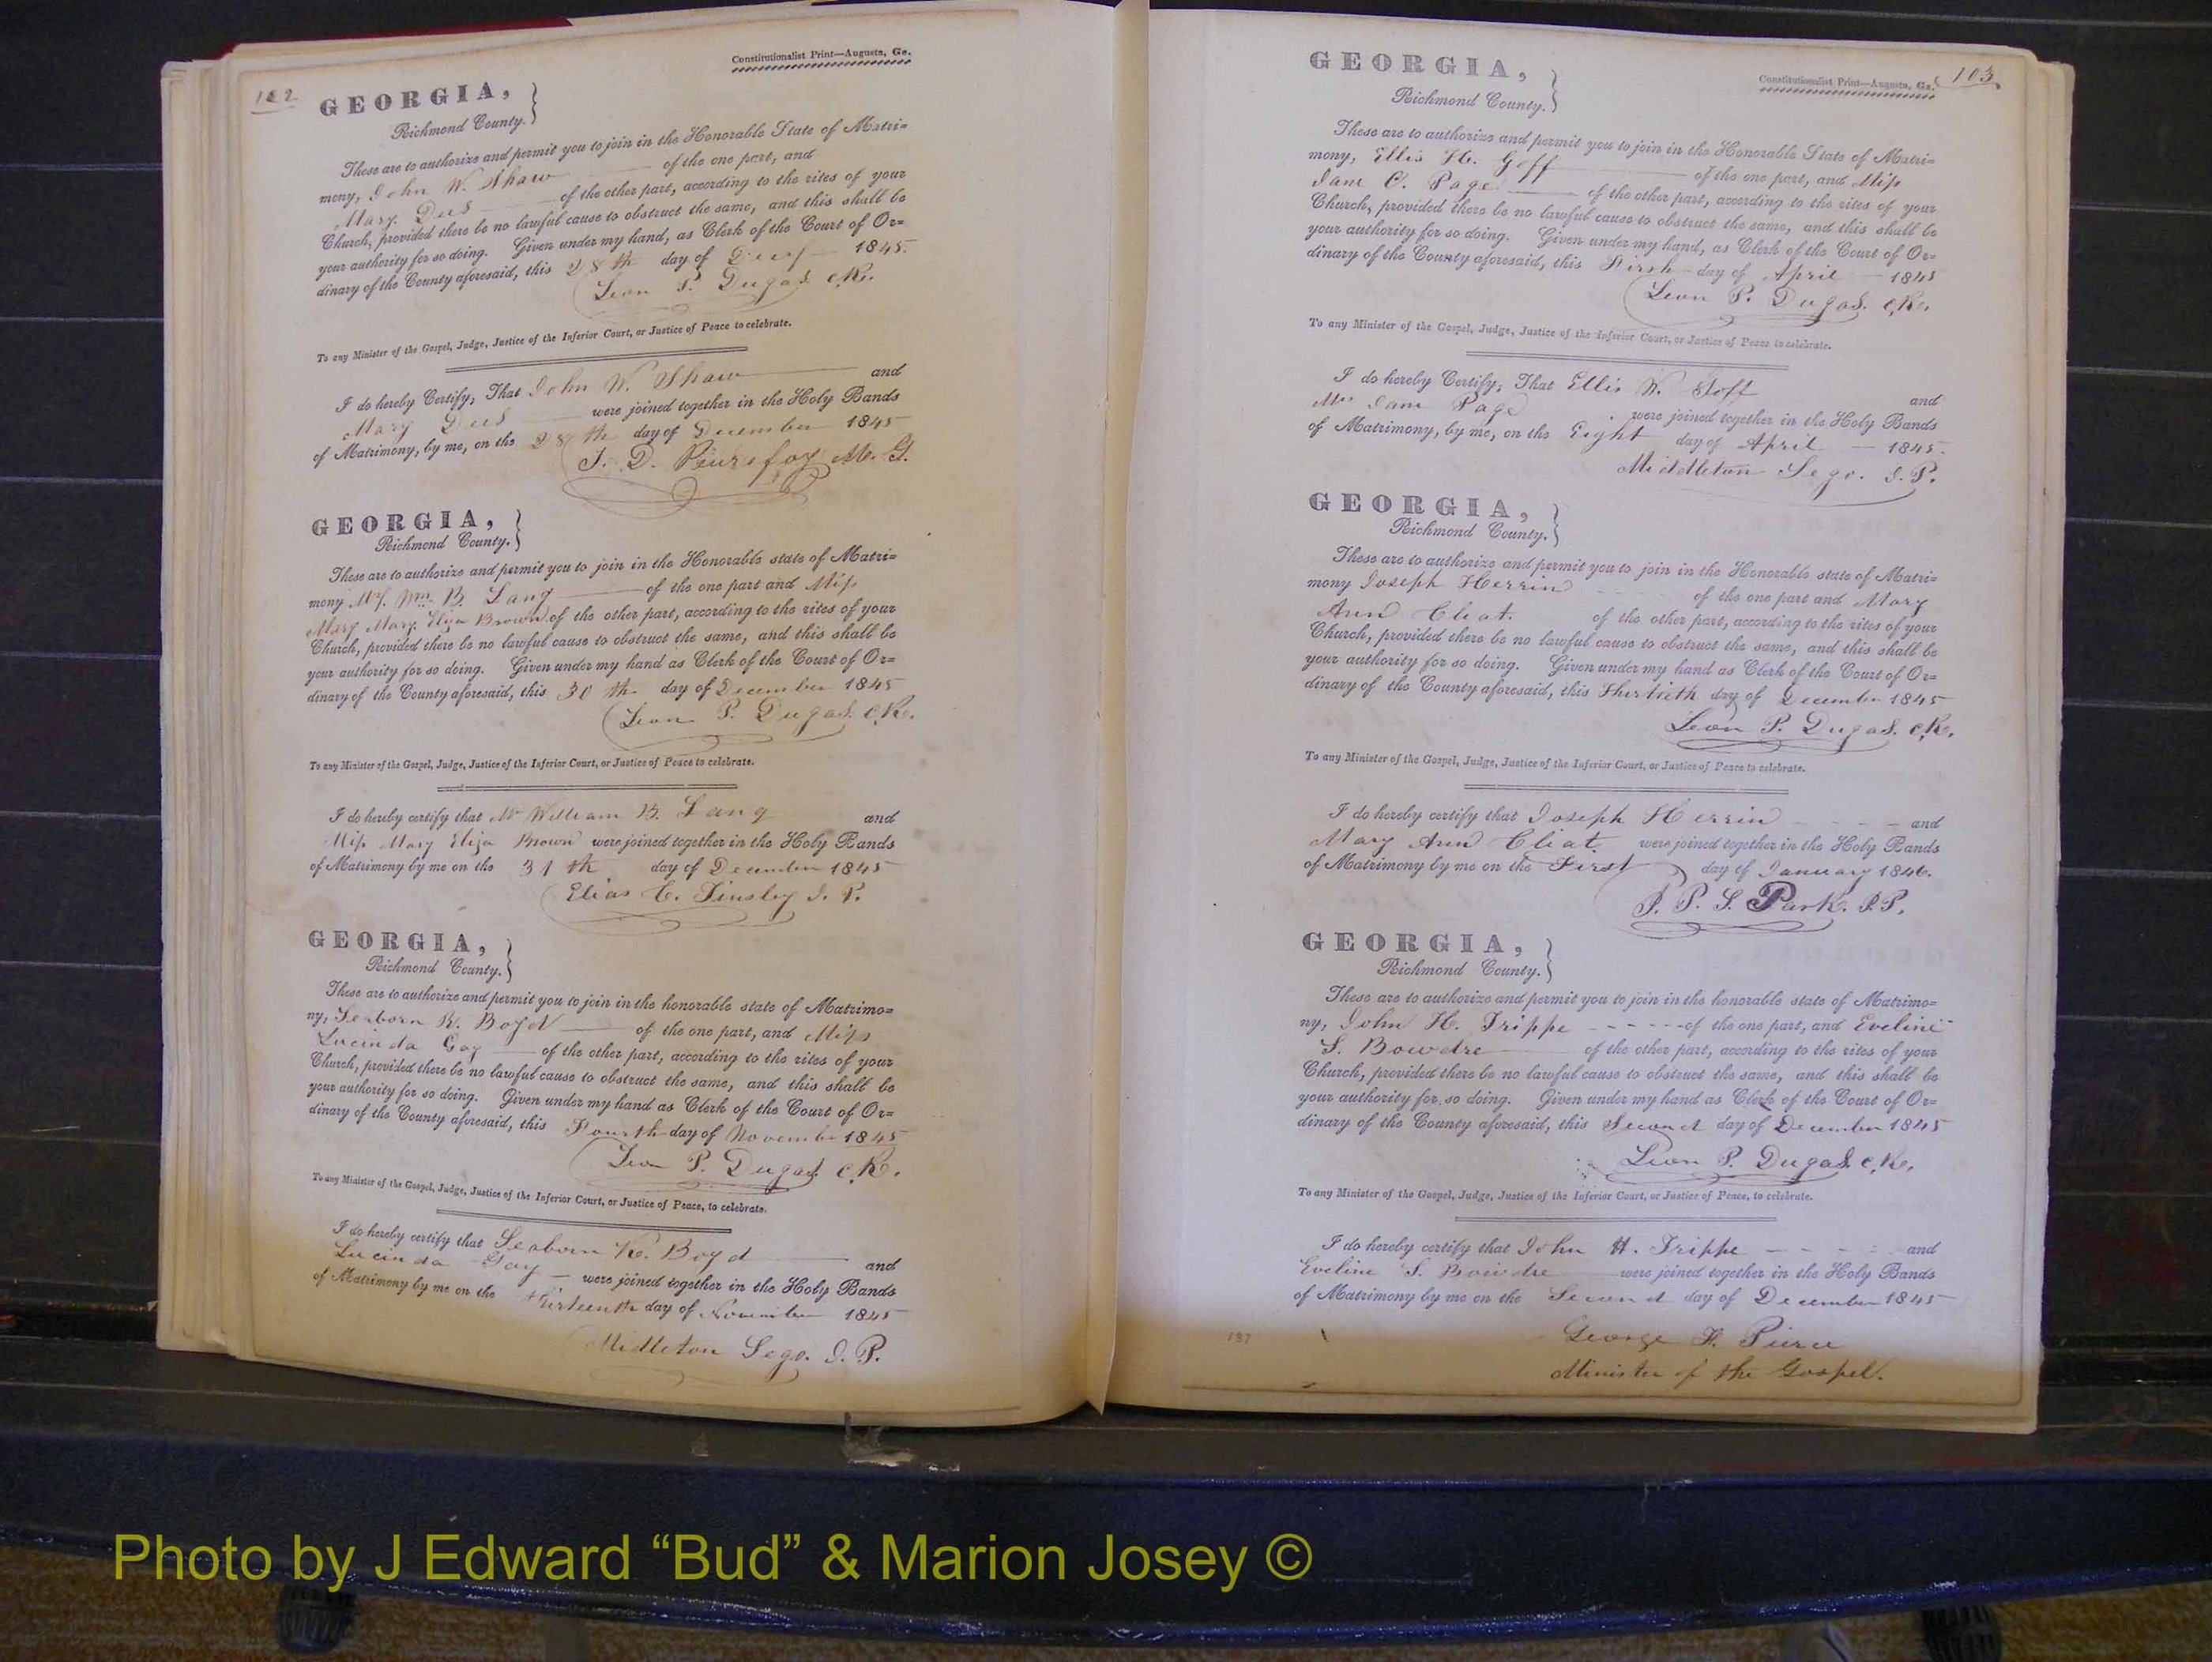 102
Constitutionalist Print—Augusta, Ga.
GEORGIA,
Richmond County.
These are to authorize and permit you to join in the Honorable State of Matri=
mony, John W. Shaw of the one part, and
Mary Dees of the other part, according to the rites of your
Church, provided there be no lawful cause to obstruct the same, and this shall be
your authority for so doing. Given under my hand, as Clerk of the Court of Or=
dinary of the County aforesaid, this 28th day of 1845.
Leon P. Dugas c,R.
To any Minister of the Gospel, Judge, Justice of the Inferior Court, or Justice of Peace to celebrate.
I do hereby Certify; That John W. Shaw and
Mary Dees were joined together in the Holy Bands
of Matrimony, by me, on the 28th day of December 1845
M. G.
GEORGIA,
Richmond County.
These are to authorize and permit you to join in the Honorable state of Matri=
mony Mr. Wm. B. Lang of the one part and Miss
Mary Mary Eliza Brown of the other part, according to the rites of your
Church, provided there be no lawful cause to obstruct the same, and this shall be
your authority for so doing. Given under my hand as Clerk of the Court of Or=
dinary of the County aforesaid, this 30th day of December 1845
Leon P. Dugas. c,R.
To any Minister of the Gospel, Judge, Justice of the Inferior Court, or Justice of Peace to celebrate.
I do hereby certify that Mr William B. Lang and
Miss Mary Eliza Brown were joined together in the Holy Bands
of Matrimony by me on the 31th day of December 1845
Elias C. Tinsley J. P.
GEORGIA,
Richmond County.
These are to authorize and permit you to join in the honorable state of Matrimo=
ny, Seaborn K. Boyd of the one part, and Miss
Lucinda Gay of the other part, according to the rites of your
Church, provided there be no lawful cause to obstruct the same, and this shall be
your authority for so doing. Given under my hand as Clerk of the Court of Or=
dinary of the County aforesaid, this Fourth day of November 1845
Leon P. Dugas. c,R.
To any Minister of the Gospel, Judge, Justice of the Inferior Court, or Justice of Peace, to celebrate.
I do hereby certify that Seaborn K. Boyd and
Lucinda Gay were joined together in the Holy Bands
of Matrimony by me on the thirteenth day of November 1845
Midleton Sego. J. P.
103
Constitutionalist Print—Augusta, Ga.
GEORGIA,
Richmond County.
These are to authorize and permit you to join in the Honorable State of Matri=
mony, Ellis W. Goff of the one part, and Miss
Jane C. Page of the other part, according to the rites of your
Church, provided there be no lawful cause to obstruct the same, and this shall be
your authority for so doing. Given under my hand, as Clerk of the Court of Or=
dinary of the County aforesaid, this First day of April 1845
Leon P. Dugas. c,R.
To any Minister of the Gospel, Judge, Justice of the Inferior Court, or Justice of Peace to celebrate.
I do hereby Certify; That Ellis W. Goff and
Jane Page were joined together in the Holy Bands
of Matrimony, by me, on the Eight day of April 1845.
Middleton Sego. J. P.
GEORGIA,
Richmond County.
These are to authorize and permit you to join in the Honorable state of Matri=
mony Joseph Herrin of the one part and Mary
Ann Cliat. of the other part, according to the rites of your
Church, provided there be no lawful cause to obstruct the same, and this shall be
your authority for so doing. Given under my hand as Clerk of the Court of Or=
dinary of the County aforesaid, this day of December 1845
Leon P. Dugas. c,R.
To any Minister of the Gospel, Judge, Justice of the Inferior Court, or Justice of Peace to celebrate.
I do hereby certify that Joseph Herrin and
Mary Ann Cliat were joined together in the Holy Bands
of Matrimony by me on the First day of January 1846.
Park. J.P.
GEORGIA,
Richmond County.
These are to authorize and permit you to join in the honorable state of Matrimo=
ny, John H. Trippe of the one part, and Eveline
S. Bowdre of the other part, according to the rites of your
Church, provided there be no lawful cause to obstruct the same, and this shall be
your authority for so doing. Given under my hand as Clerk of the Court of Or=
dinary of the County aforesaid, this Second day of December 1845
Leon P. Dugas. c,R.
To any Minister of the Gospel, Judge, Justice of the Inferior Court, or Justice of Peace, to celebrate.
I do hereby certify that John H. Trippe and
Eveline S. Bowdre were joined together in the Holy Bands
of Matrimony by me on the Second day of December 1845
George F. Pierce
Minister of the Gospel.
Photo by J Edward “Bud” & Marion Josey ©